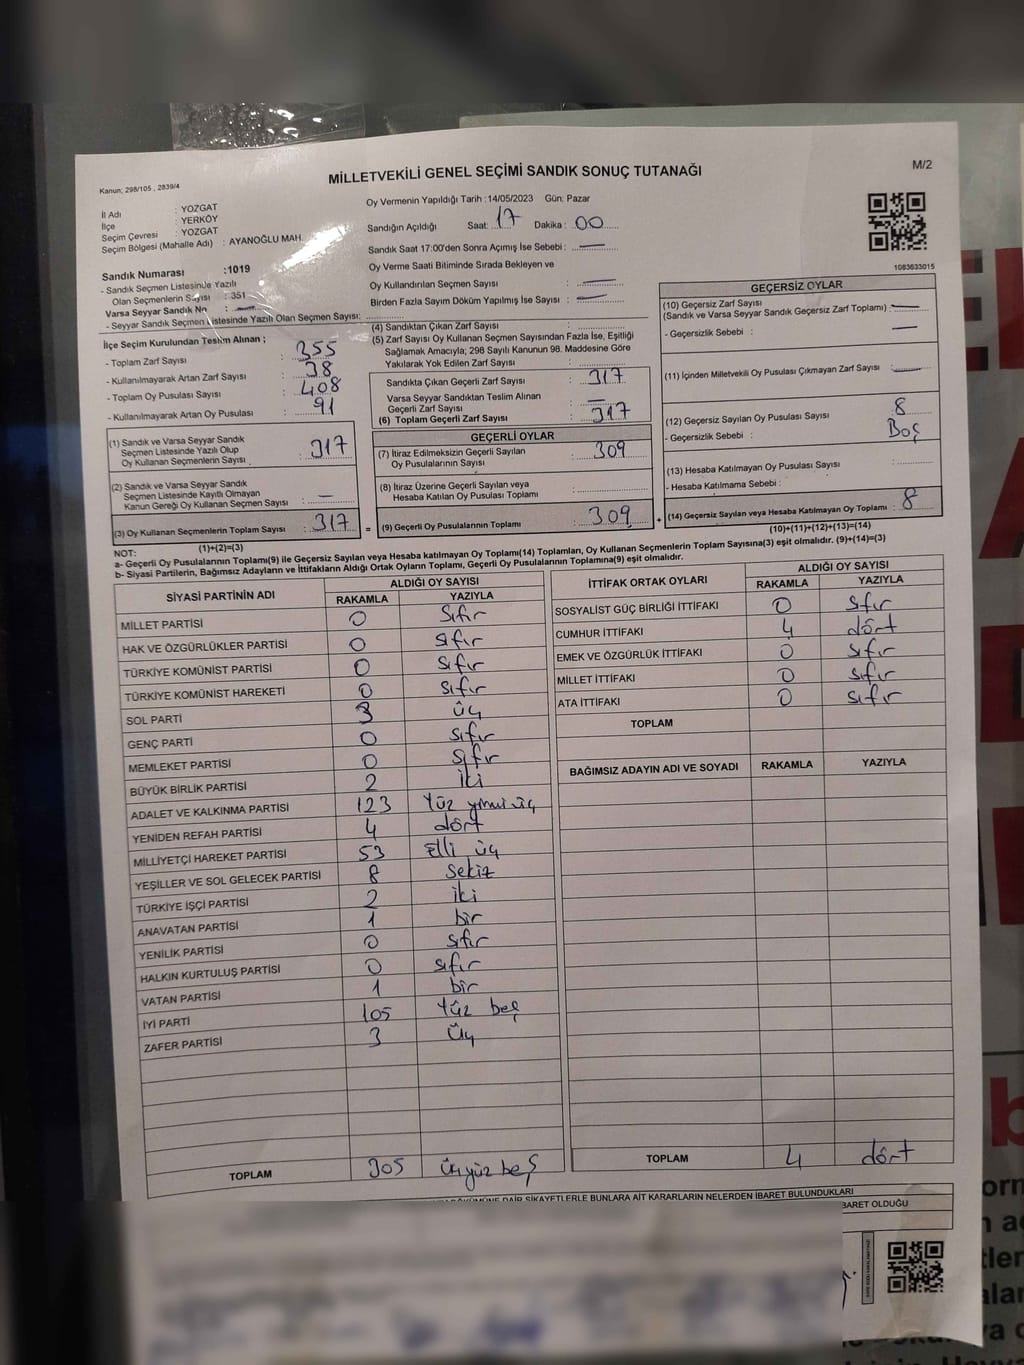 MİLLETVEKİLİ GENEL SEÇİMİ SANDIK SONUÇ TUTANAĞI
M/2
Kanun; 298/105 , 2839/4
İl Adı : YOZGAT
İlçe : YERKÖY
Seçim Çevresi : YOZGAT
Seçim Bölgesi (Mahalle Adı) : AYANOĞLU MAH.
Oy Vermenin Yapıldığı Tarih :14/05/2023 Gün: Pazar
Sandığın Açıldığı Saat: 17 Dakika : 00
Sandık Saat 17:00'den Sonra Açımış İse Sebebi : —
Oy Verme Saati Bitiminde Sırada Bekleyen ve
Oy Kullandırılan Seçmen Sayısı : —
Birden Fazla Sayım Döküm Yapılmış İse Sayısı : —
1083633015
Sandık Numarası :1019
- Sandık Seçmen Listesinde Yazılı
Olan Seçmenlerin Sayısı : 351
Varsa Seyyar Sandık No : —
- Seyyar Sandık Seçmen Listesinde Yazılı Olan Seçmen Sayısı:
İlçe Seçim Kurulundan Teslim Alınan ;
- Toplam Zarf Sayısı : 355
- Kullanılmayarak Artan Zarf Sayısı : 38
- Toplam Oy Pusulası Sayısı : 408
- Kullanılmayarak Artan Oy Pusulası : 91
(1) Sandık ve Varsa Seyyar Sandık
Seçmen Listesinde Yazılı Olup
Oy Kullanan Seçmenlerin Sayısı : 317
(2) Sandık ve Varsa Seyyar Sandık
Seçmen Listesinde Kayıtlı Olmayan
Kanun Gereği Oy Kullanan Seçmen Sayısı : —
(3) Oy Kullanan Seçmenlerin Toplam Sayısı : 317 =
(1)+(2)=(3)
(4) Sandıktan Çıkan Zarf Sayısı :
(5) Zarf Sayısı Oy Kullanan Seçmen Sayısından Fazla İse, Eşitliği
Sağlamak Amacıyla; 298 Sayılı Kanunun 98. Maddesine Göre
Yakılarak Yok Edilen Zarf Sayısı :
Sandıkta Çıkan Geçerli Zarf Sayısı : 317
Varsa Seyyar Sandıktan Teslim Alınan
Geçerli Zarf Sayısı : —
(6) Toplam Geçerli Zarf Sayısı : 317
GEÇERLİ OYLAR
(7) İtiraz Edilmeksizin Geçerli Sayılan
Oy Pusulalarının Sayısı : 309
(8) İtiraz Üzerine Geçerli Sayılan veya
Hesaba Katılan Oy Pusulası Toplamı :
(9) Geçerli Oy Pusulalarının Toplamı : 309 +
GEÇERSİZ OYLAR
(10) Geçersiz Zarf Sayısı
(Sandık ve Varsa Seyyar Sandık Geçersiz Zarf Toplamı) : —
- Geçersizlik Sebebi : —
(11) İçinden Milletvekili Oy Pusulası Çıkmayan Zarf Sayısı : —
(12) Geçersiz Sayılan Oy Pusulası Sayısı : 8
- Geçersizlik Sebebi : Boş
(13) Hesaba Katılmayan Oy Pusulası Sayısı :
- Hesaba Katılmama Sebebi :
(14) Geçersiz Sayılan veya Hesaba Katılmayan Oy Toplamı : 8
(10)+(11)+(12)+(13)=(14)
NOT:
a- Geçerli Oy Pusulalarının Toplamı(9) ile Geçersiz Sayılan veya Hesaba katılmayan Oy Toplamı(14) Toplamları, Oy Kullanan Seçmenlerin Toplam Sayısına(3) eşit olmalıdır. (9)+(14)=(3)
b- Siyasi Partilerin, Bağımsız Adayların ve İttifakların Aldığı Ortak Oyların Toplamı, Geçerli Oy Pusulalarının Toplamına(9) eşit olmalıdır.
SİYASİ PARTİNİN ADI ALDIĞI OY SAYISI
RAKAMLA YAZIYLA
MİLLET PARTİSİ 0 Sıfır
HAK VE ÖZGÜRLÜKLER PARTİSİ 0 sıfır
TÜRKİYE KOMÜNİST PARTİSİ 0 sıfır
TÜRKİYE KOMÜNİST HAREKETİ 0 sıfır
SOL PARTİ 3 üç
GENÇ PARTİ 0 sıfır
MEMLEKET PARTİSİ 0 sıfır
BÜYÜK BİRLİK PARTİSİ 2 iki
ADALET VE KALKINMA PARTİSİ 123 Yüz yirmi üç
YENİDEN REFAH PARTİSİ 4 dört
MİLLİYETÇİ HAREKET PARTİSİ 53 Elli üç
YEŞİLLER VE SOL GELECEK PARTİSİ 8 Sekiz
TÜRKİYE İŞÇİ PARTİSİ 2 iki
ANAVATAN PARTİSİ 1 bir
YENİLİK PARTİSİ 0 sıfır
HALKIN KURTULUŞ PARTİSİ 0 sıfır
VATAN PARTİSİ 1 bir
İYİ PARTİ 105 Yüz beş
ZAFER PARTİSİ 3 Üç
TOPLAM 305 üçyüz beş
İTTİFAK ORTAK OYLARI ALDIĞI OY SAYISI
RAKAMLA YAZIYLA
SOSYALİST GÜÇ BİRLİĞİ İTTİFAKI 0 sıfır
CUMHUR İTTİFAKI 4 dört
EMEK VE ÖZGÜRLÜK İTTİFAKI 0 sıfır
MİLLET İTTİFAKI 0 sıfır
ATA İTTİFAKI 0 sıfır
TOPLAM
BAĞIMSIZ ADAYIN ADI VE SOYADI RAKAMLA YAZIYLA
TOPLAM 4 dört
DAİR ŞİKAYETLERLE BUNLARA AİT KARARLARIN NELERDEN İBARET BULUNDUKLARI
BARET OLDUĞU